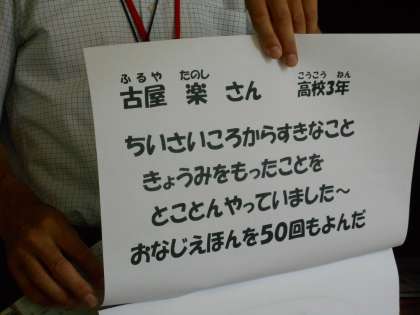 ふるや たのし こうこう ねん
古屋 楽 さん 高校3年
ちいさいころからすきなこと
きょうみをもったことを
とことんやっていました～
おなじえほんを50回もよんだ